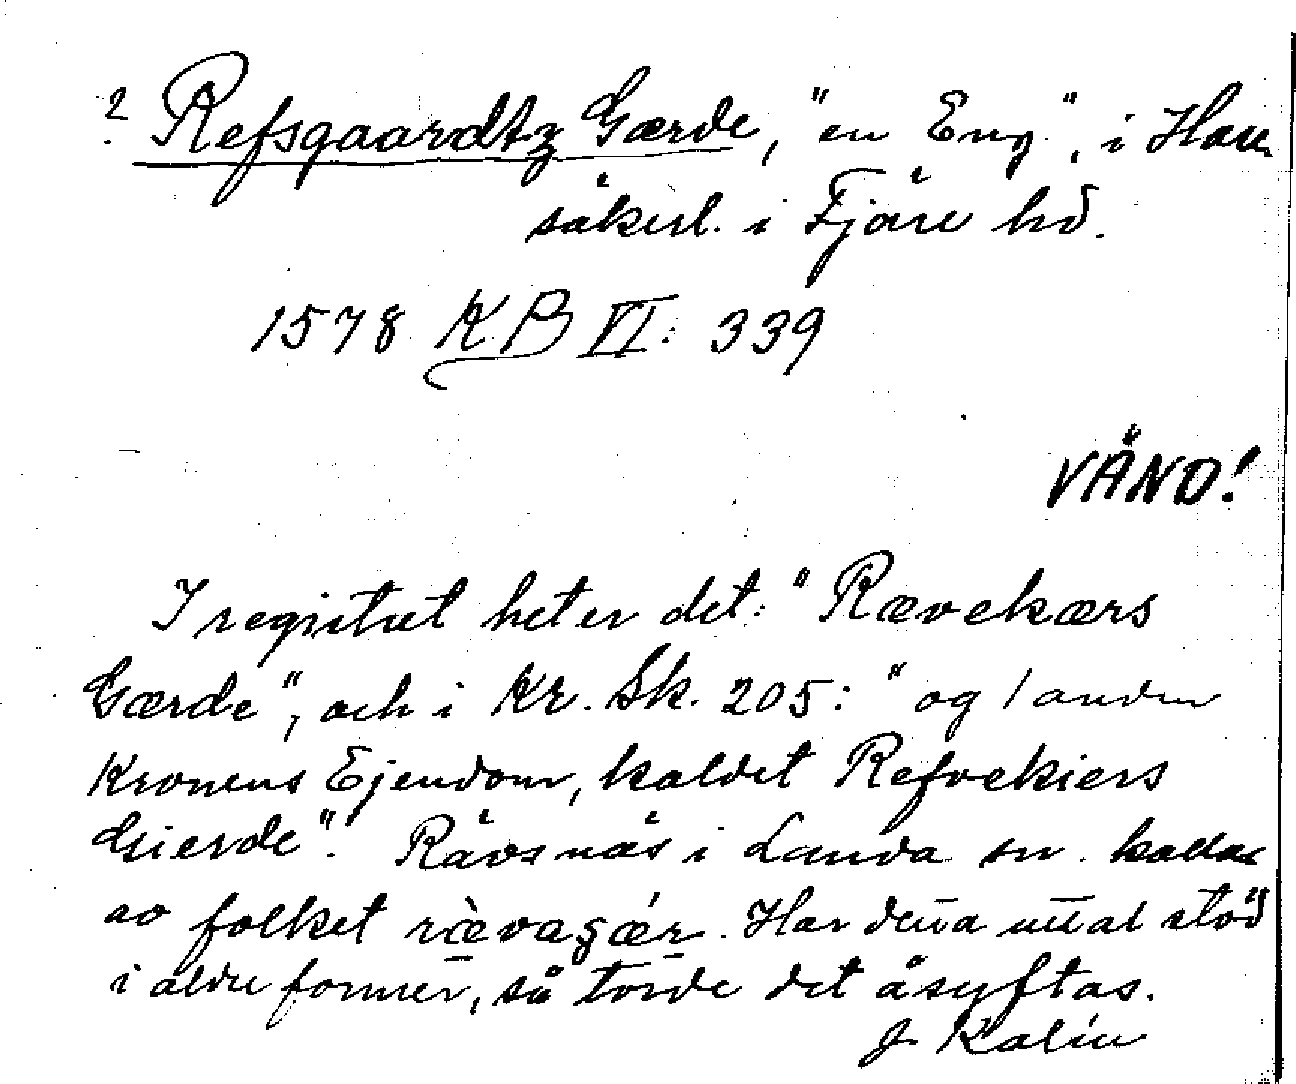 ? Refsgaardtz Gærde, "en Eng", i Hall.
säkerl. i Fjäre hd.
1578 KB VI: 339
VÄND!
I registret heter det: "Rævekærs
Gærde", och i Kr. Sk. 205: "og 1 anden
Kronens Ejendom, kaldet Refvekiers
Gierde". Rävsnäs i Landa sn. kallas
av folket rævagær. Har detta uttal stöd
i äldre former, så torde det åsyftas.
J. Kalén